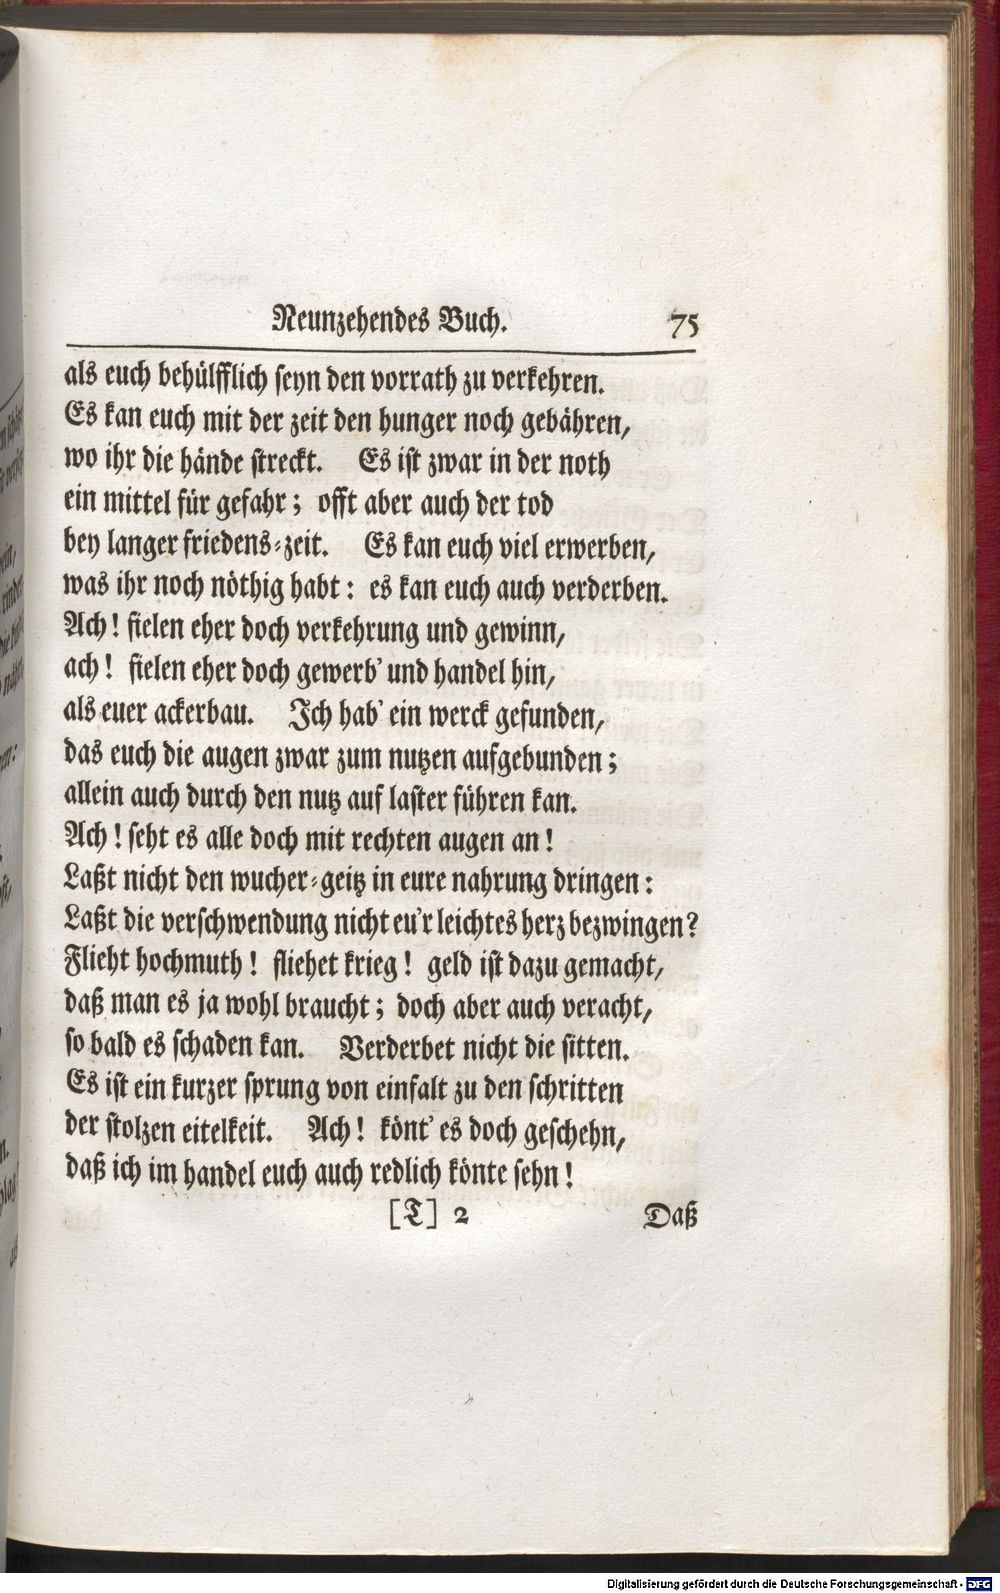 Neunzehendes Buch. 75
als euch behülfflich seyn den vorrath zu verkehren.
Es kan euch mit der zeit den hunger noch gebähren,
wo ihr die hände streckt. Es ist zwar in der noth
ein mittel für gefahr; offt aber auch der tod
bey langer friedens-zeit. Es kan euch viel erwerben,
was ihr noch nöthig habt: es kan euch auch verderben.
Ach! fielen eher doch verkehrung und gewinn,
ach! fielen eher doch gewerb' und handel hin,
als euer ackerbau. Ich hab' ein werck gefunden,
das euch die augen zwar zum nutzen aufgebunden;
allein auch durch den nutz auf laster führen kan.
Ach! seht es alle doch mit rechten augen an!
Laßt nicht den wucher-geitz in eure nahrung dringen:
Laßt die verschwendung nicht eu'r leichtes herz bezwingen?
Flieht hochmuth! fliehet krieg! geld ist dazu gemacht,
daß man es ja wohl braucht; doch aber auch veracht,
so bald es schaden kan. Verderbet nicht die sitten.
Es ist ein kurzer sprung von einfalt zu den schritten
der stolzen eitelkeit. Ach! könt' es doch geschehn,
daß ich im handel euch auch redlich könte sehn!
[T] 2 Daß
Digitalisierung gefördert durch die Deutsche Forschungsgemeinschaft - DFG